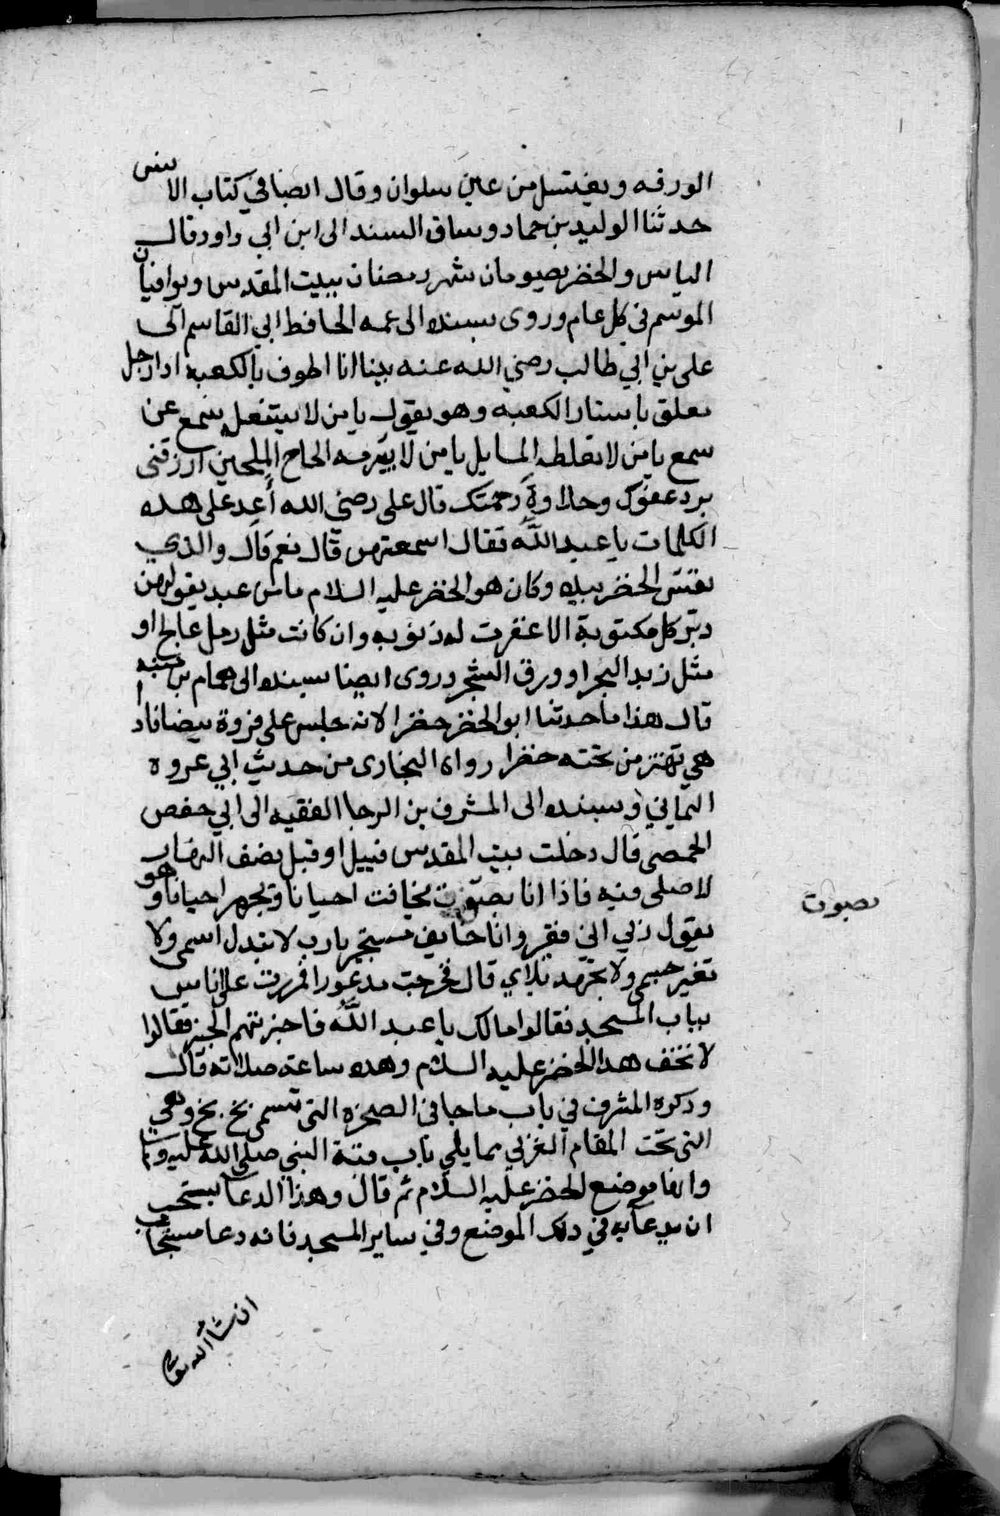 الورقه ويغتسل من عين سلوان وقال ايضا في كتاب الانس
حدثنا الوليد بن حماد وساق السند الى ابن ابي داود قال
الياس والخضر يصومان شهر رمضان ببيت المقدس ويوافيان
الموسم في كل عام وروى بسنده الى عمه الحافظ ابي القاسم الى
علي بن ابي طالب رضي الله عنه بينا انا اطوف بالكعبه اذا رجل
معلق باستار الكعبه وهو يقول يا من لا يشغله سمع عن
سمع يا من لا تغلطه المسايل يا من لا يتبرمه الحاح الملحين ارزقني
برد عفوك وحلاوة رحمتك قال علي رضي الله أعد علي هذه
الكلمات يا عبد الله فقال اسمعتهن قال نعم قال والذي
نفس الخضر بيده وكان هو الخضر عليه السلام ما من عبد يقولهن
دبر كل مكتوبة الا غفرت له ذنوبه وان كانت مثل رمل عالج او
مثل زبد البحر او ورق الشجر وروى ايضا بسنده الى همام بن منبه
قال هذا ما حدثنا ابو الخضر خضرا لانه جلس على فروة بيضا فاذا
هي تهتز من تحته خضرا رواه البخاري من حديث ابي عروه
اليماني وبسنده الى المشرف بن الرجا الفقيه الى ابي حفص
الحمصي قال دخلت بيت المقدس قبيل او قبل نصف النهار
لاصلي فيه فاذا انا بصوت يخافت احيانا ويجهر احيانا وهو
يقول ربي اني فقير وانا خايف مستجير يا رب لا تبدل اسمي ولا
تغير جسمي ولا تجهد بلاي قال فخرجت مذعورا فمررت على اناس
بباب المسجد فقالوا مالك يا عبد الله فاخبرتهم الخبر فقالوا
لا تخف هذا الخضر عليه السلام وهذه ساعة صلاته قال
وذكره المشرف في باب ما جا في الصخرة التي تسمى بخ بخ وهي
التي تحت المقام الغربي مما يلي باب قبة النبي صلى الله عليه وسلم
وانها موضع الخضر عليه السلام ثم قال وهذا الدعا يستحب
ان يدعا به في ذلك الموضع وفي ساير المسجد فانه دعا مستجاب
ان شا الله تعالى
بصوت